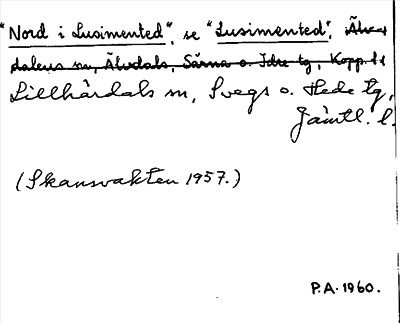 "Nord i Lusimented", se "Lusimented", Älv-
dalens sn, Älvdals, Särna o. Idre tg, Kopp. l.
Lillhärdals sn, Svegs o. Hede tg,
Jämtl. l.
(Skansvakten 1957.)
P.A. 1960.